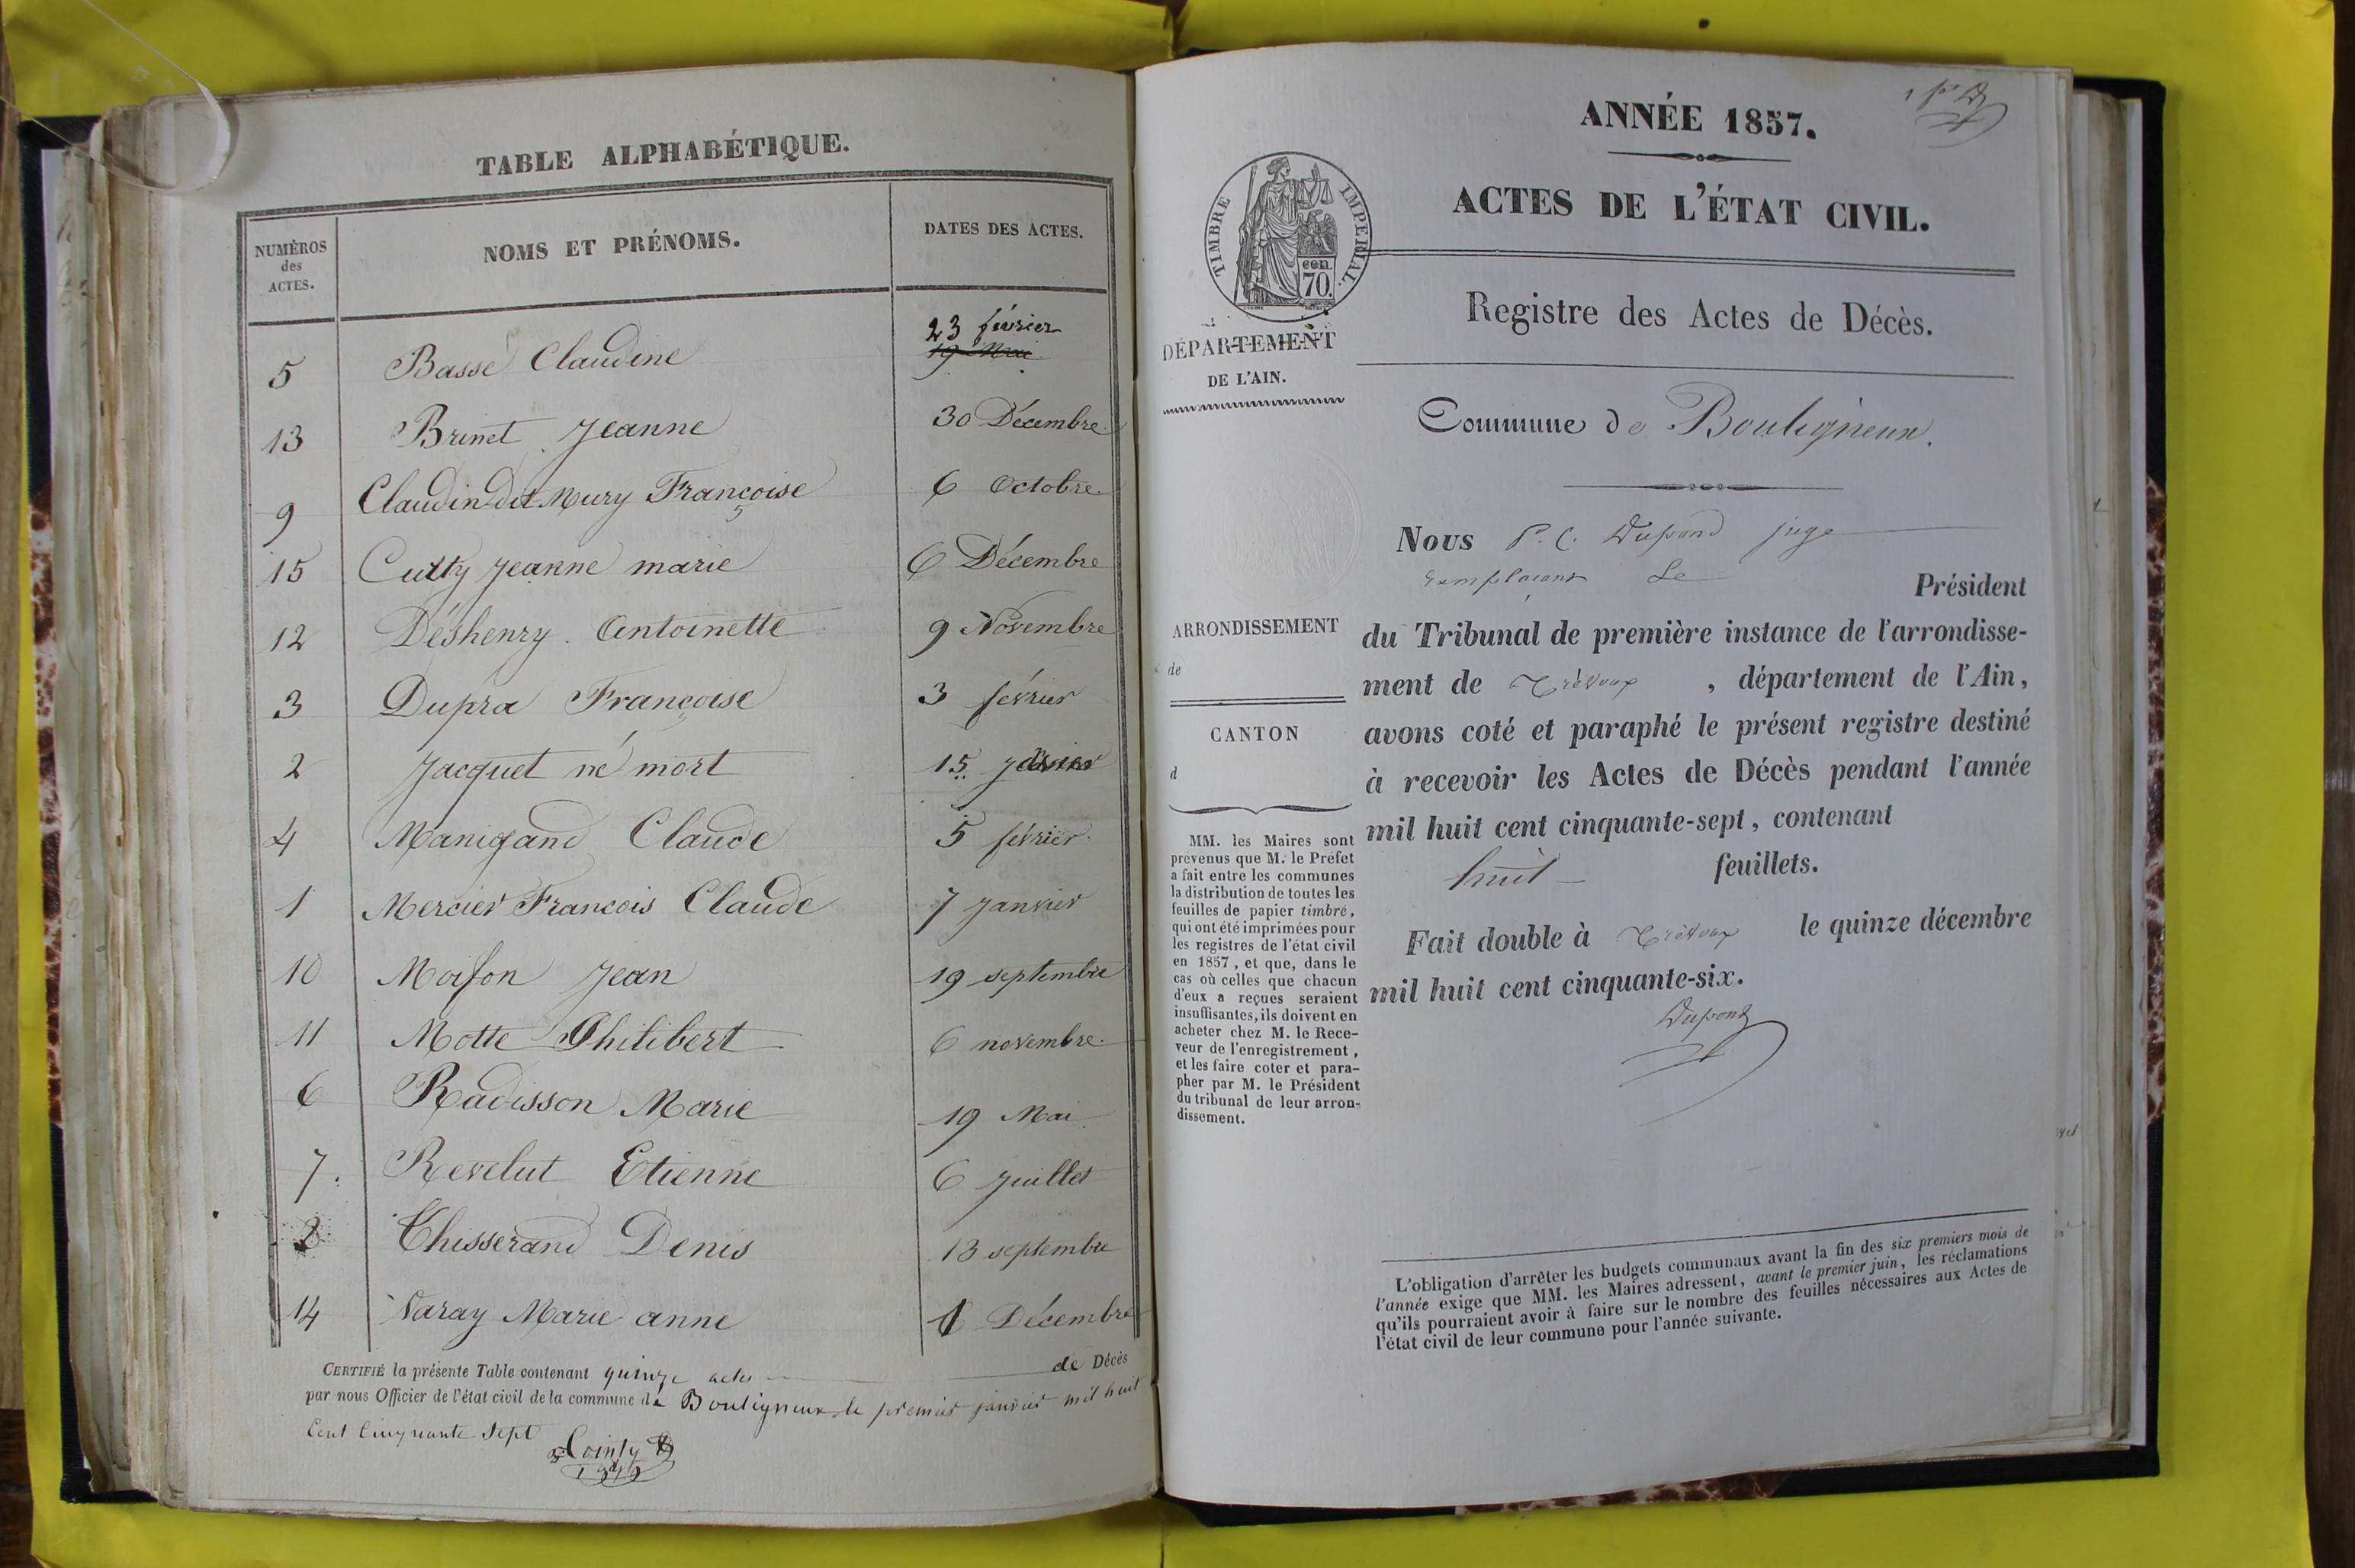 TABLE ALPHABÉTIQUE.
NUMÉROS
des
ACTES.
NOMS ET PRÉNOMS.
DATES DES ACTES.
5 Basse Claudine 23 février
19 Mai
13 Brinet Jeanne 30 Décembre.
9 Claudin dit Mury Françoise 6 Octobre.
15 Cutty Jeanne marie 6 Décembre
12 Déshenry. Antoinette 9 Novembre
3 Dupra Françoise 3 février
2 Jacquet né mort 15 Janvier
4 Manigand Claude 5 février.
1 Mercier François Claude 7 Janvier
10 Moisson Jean 19 septembre
11 Motte Philibert 6 novembre.
6 Radisson Marie 19 Mai
7. Revelut Etienne 6 Juillet
8 Thisserand Denis 13 septembre
14 Varay Marie anne 1 Décembre
CERTIFIÉ la présente Table contenant quinze actes de Décès
par nous Officier de l'état civil de la commune de Bouligneux le premier janvier mil huit
Cent Cinquante Sept
ANNÉE 1857.
ACTES DE L'ÉTAT CIVIL.
TIMBRE IMPERIAL.
cen.
70.
Registre des Actes de Décès.
DÉPARTEMENT
DE L'AIN.
Commune de Bouligneux.
Nous P. C. Dupond juge
remplaçant Le Président
ARRONDISSEMENT
de
CANTON
d
du Tribunal de première instance de l'arrondisse-
ment de Trévoux , département de l'Ain,
avons coté et paraphé le présent registre destiné
à recevoir les Actes de Décès pendant l'année
mil huit cent cinquante-sept, contenant
huit feuillets.
Fait double à Trévoux le quinze décembre
mil huit cent cinquante-six.
Dupond
MM. les Maires sont
prévenus que M. le Préfet
a fait entre les communes
la distribution de toutes les
feuilles de papier timbré,
qui ont été imprimées pour
les registres de l'état civil
en 1857, et que, dans le
cas où celles que chacun
d'eux a reçues seraient
insuffisantes, ils doivent en
acheter chez M. le Rece-
veur de l'enregistrement,
et les faire coter et para-
pher par M. le Président
du tribunal de leur arron-
dissement.
L'obligation d'arrêter les budgets communaux avant la fin des six premiers mois de
l'année exige que MM. les Maires adressent, avant le premier juin, les réclamations
qu'ils pourraient avoir à faire sur le nombre des feuilles nécessaires aux Actes de
l'état civil de leur commune pour l'année suivante.